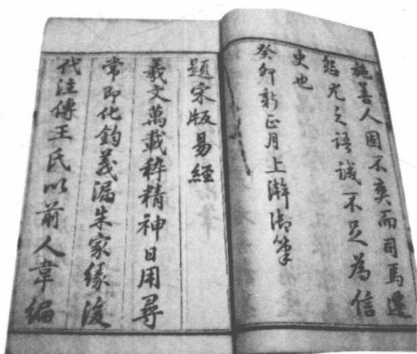 施善人固不爽而司馬遷
怨尤之語誠不足為信
史也
癸卯新正月上澣御筆
題宋版易經
羲文萬載稡精神日用尋
常即化鈞義漏朱家緣後
代注傳王氏以前人韋編